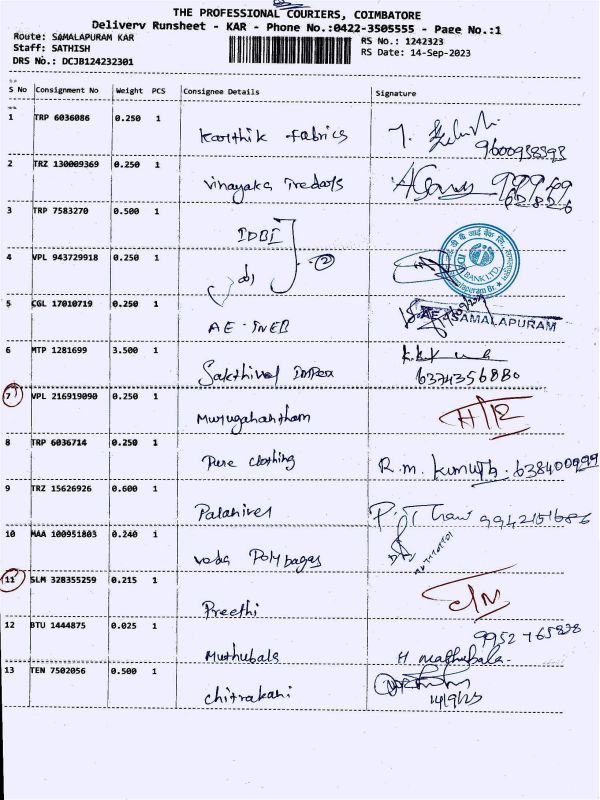 THE PROFESSIONAL COURIERS, COIMBATORE
Delivery Runsheet - KAR - Phone No.:0422-3505555 - Page No.:1
Route: SAMALAPURAM KAR
RS No.: 1242323
Staff: SATHISH
RS Date: 14-Sep-2023
DRS No.: DCJB124232301
S No Consignment No Weight PCS Consignee Details Signature
1 TRP 6036086 0.250 1 Karthik fabrics
9600938393
2 TRZ 130009369 0.250 1 Vinayaka
3 TRP 7583270 0.500 1 IDBI
4 VPL 943729918 0.250 1 (2)
IDBI BANK LTD.
Samalapuram Br.
5 CGL 17010719 0.250 1 AE-TNEB
AE SAMALAPURAM
6 MTP 1281699 3.500 1 Sakthivel Impex
6374356880
7 VPL 216919090 0.250 1 Murugahantham
8 TRP 6036714 0.250 1 Pure clothing R.m. Kumuth. 638400999
9 TRZ 15626926 0.600 1 Palanivel 9942151686
10 MAA 100951803 0.240 1
11 SLM 328355259 0.215 1 Preethi
12 BTU 1444875 0.025 1 Muthubala
9952765878
M mathubala.
13 TEN 7502056 0.500 1 Chitrakani
14/9/23